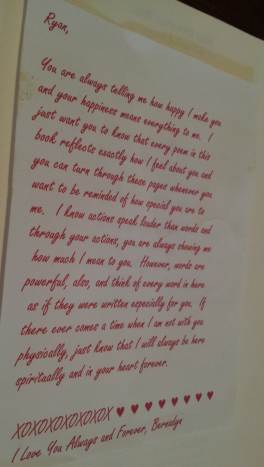 Ryan,
You are always telling me how happy I make you
and your happiness means everything to me. I
just want you to know that every poem in this
book reflects exactly how I feel about you and
you can turn through these pages whenever you
want to be reminded of how special you are to
me. I know actions speak louder than words and
through your actions, you are always showing me
how much I mean to you. However, words are
powerful, also, and think of every word in here
as if they were written especially for you. If
there ever comes a time when I am not with you
physically, just know that I will always be here
spiritually and in your heart forever.
XOXOXOXOXOXOX ♥ ♥ ♥ ♥ ♥ ♥ ♥ ♥
I Love You Always and Forever,